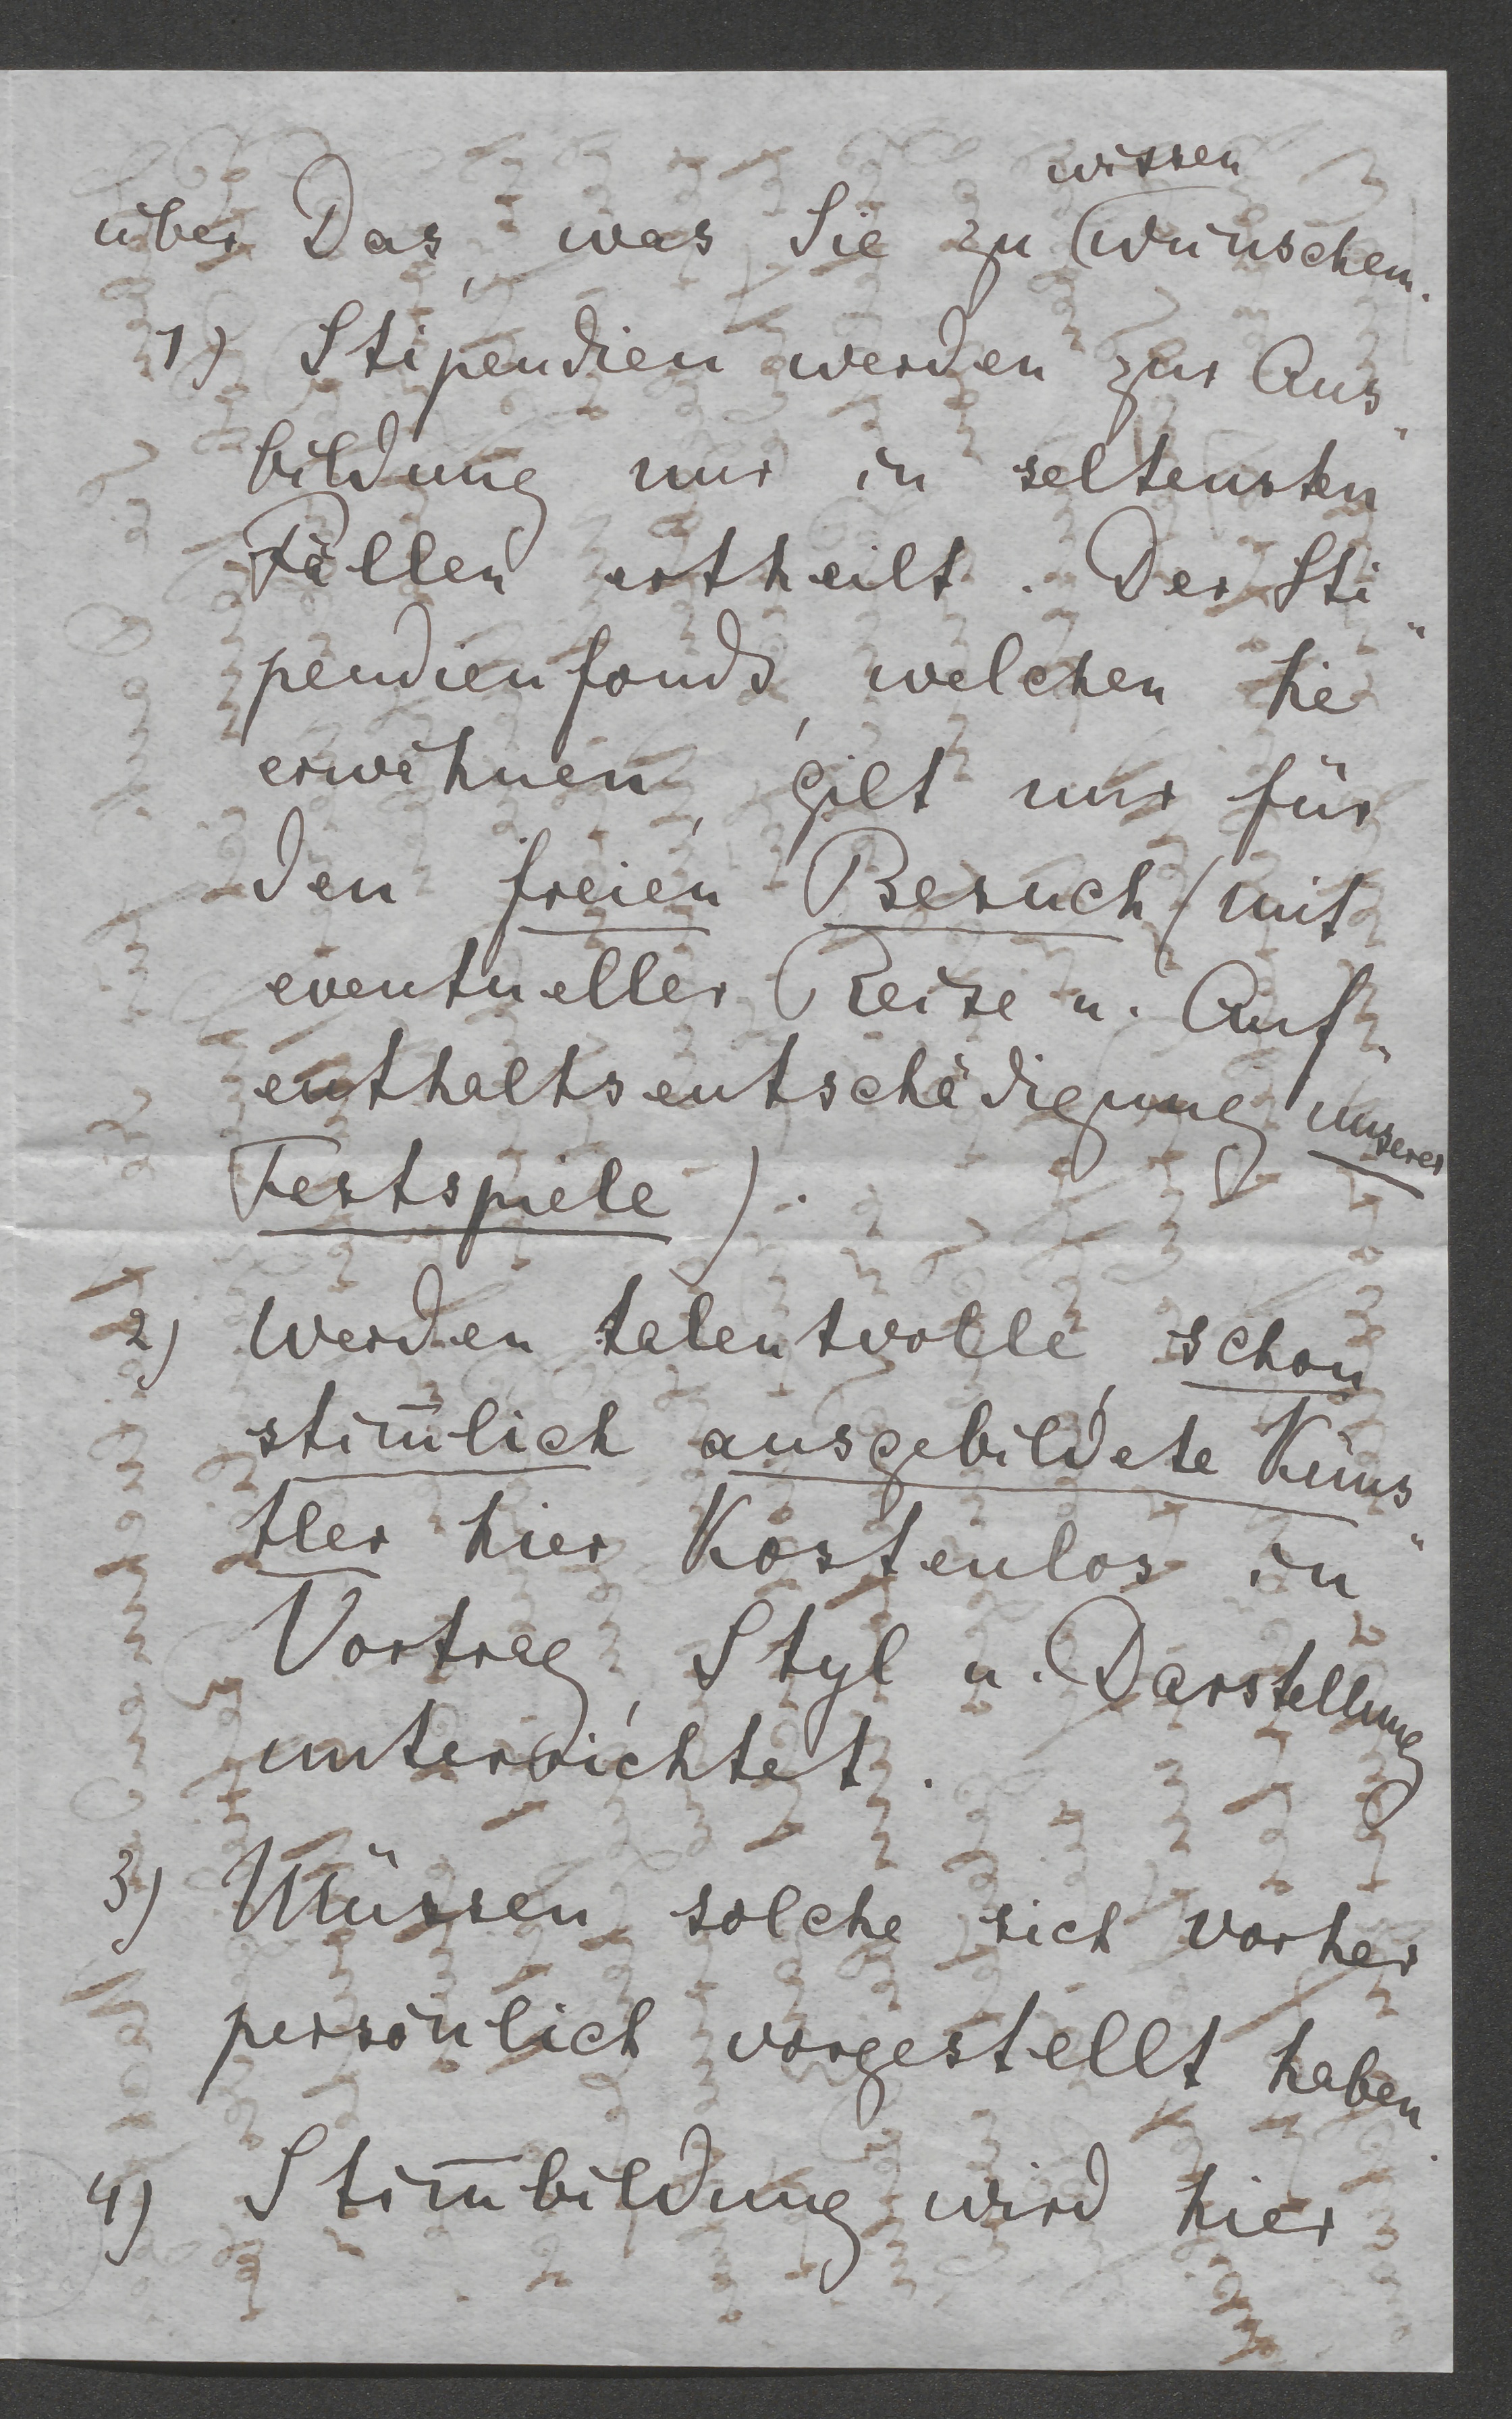 wissen
über Das, was Sie zu wünschen.
1) Stipendien werden zur Aus"
bildung nur in seltensten
Fällen ertheilt. Der Sti"
pendienfonds, welchen Sie
erwähnen, gilt nur für
den freien Besuch (mit
eventueller Reise u. Auf"
enthaltsentschädigung unserer
Festspiele).
2) Werden talentvolle, schon
stim̄lich ausgebildete Küns"
tler hier kostenlos in
Vortrag, Styl u. Darstellung
unterrichtet.
3) Müssen solche sich vorher
persönlich vorgestellt haben.
4) Stim̄bildung wird hier